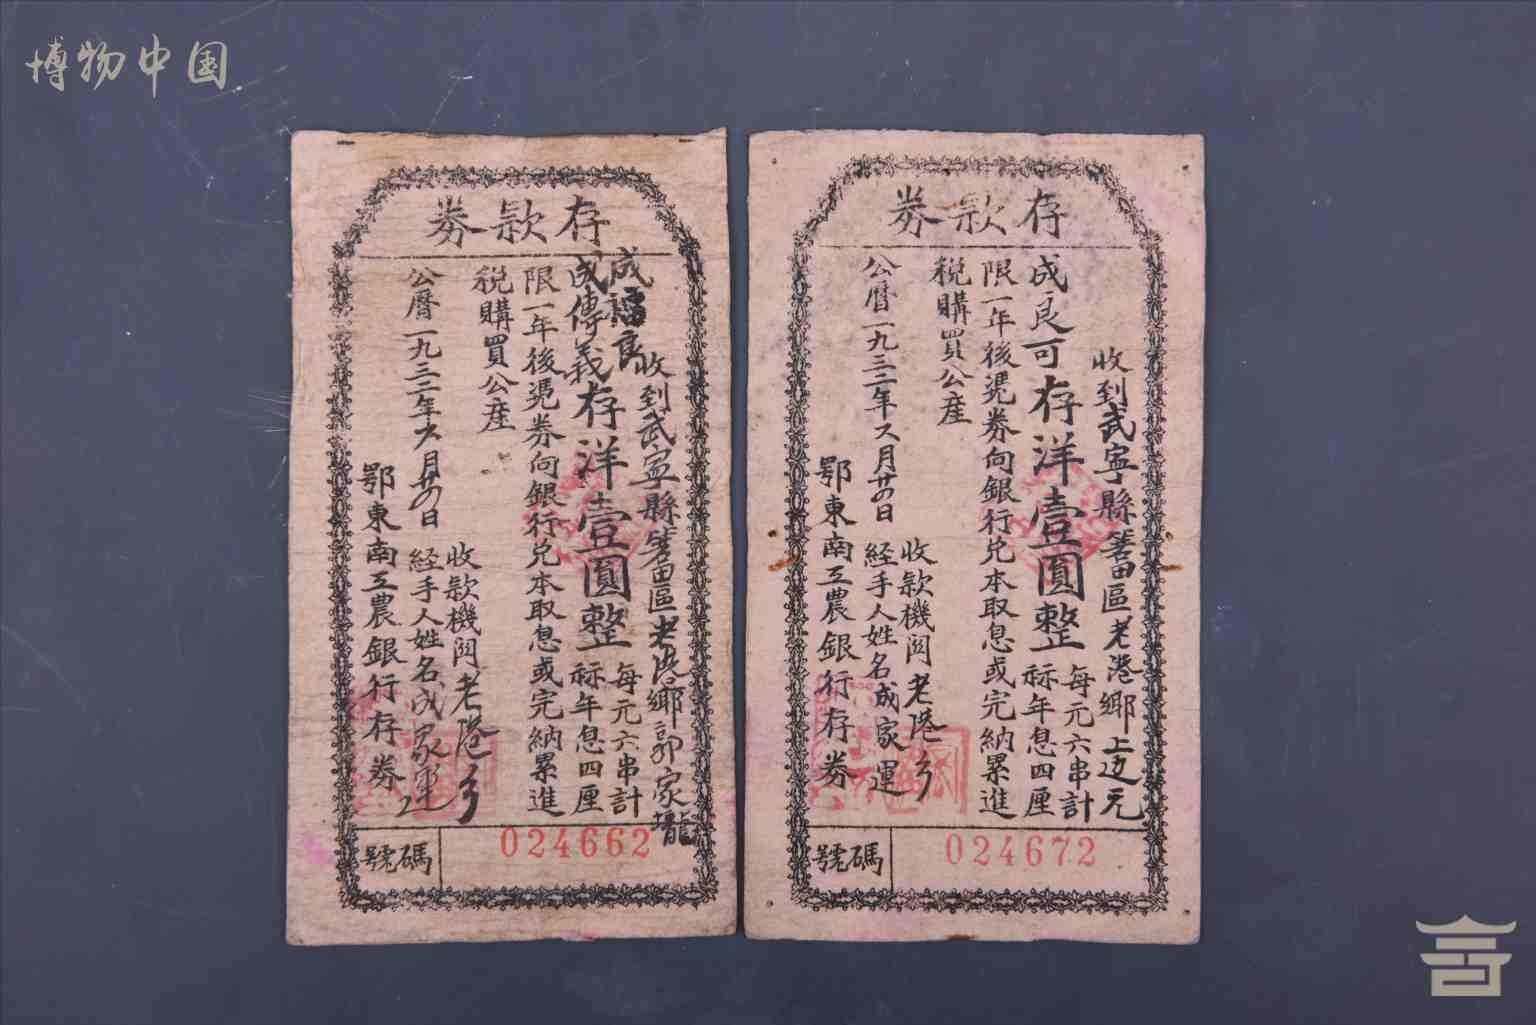 博物中国
存款券
收到武寧縣箬田區老港鄉郭家壠
成福良
成傳義存洋壹圓整
每元六串計
稱年息四厘
限一年後憑券向銀行兌本取息或完納累進
稅購買公產
收款機関老港乡
経手人姓名成家運
公曆一九三二年六月廿四日
鄂東南工農銀行存券
號碼
024662
存款券
收到武寧縣箬田區老港鄉上边元
成良可存洋壹圓整
每元六串計
稱年息四厘
限一年後憑券向銀行兌本取息或完納累進
稅購買公產
收款機関老港乡
経手人姓名成家運
公曆一九三二年六月廿四日
鄂東南工農銀行存券
號碼
024672